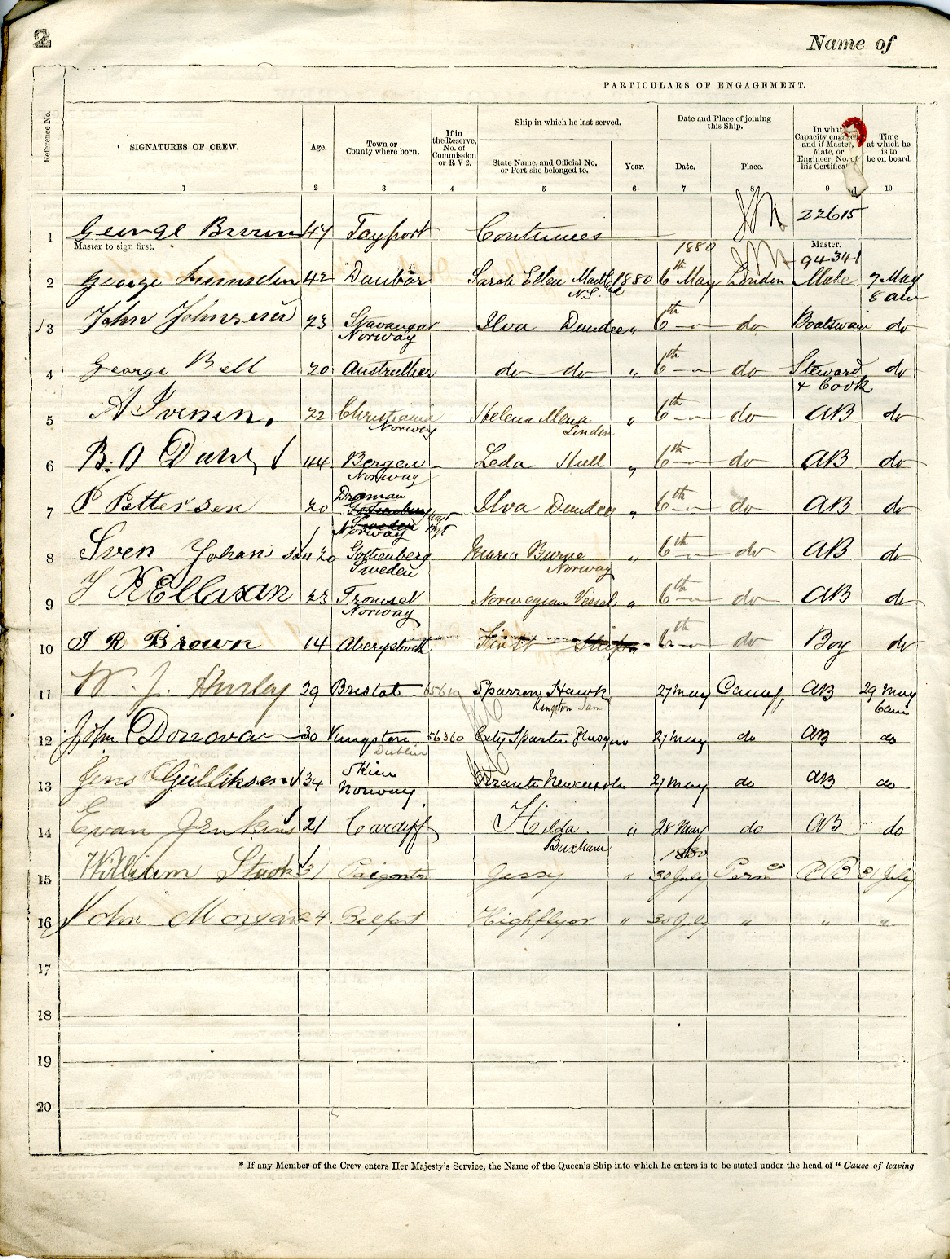 2
Name of
PARTICULARS OF ENGAGEMENT.
Reference No.
SIGNATURES OF CREW.
Age.
Town or County where born.
If in the Reserve, No. of Commission or R V 2.
Ship in which he last served.
State Name, and Official No. or Port she belonged to.
Year.
Date and Place of joining this Ship.
Date.
Place.
In what Capacity engaged and if Master, Mate, or Engineer No. of his Certificate
Time at which he is to be on board
1 2 3 4 5 6 7 8 9 10
1 George Brown 47 Tayport Continues 22615
Master to sign first. Master.
1880 94341
2 George Lumsden 42 Dunbar Sarah Ellen 1880 6th May London Mate 7 May
N.S. 8 am
3 John 23 Stavanger Ilva Dundee " 6th do Boatswain do
Norway
4 George Bell 20 Anstruther do do " 6th do Steward do
& Cook
5 22 Christiania Helena Mena " 6th do AB do
Norway London
6 44 Bergen Leda Hull " 6th do AB do
Norway
7 P Petterson 20 Ilva Dundee " 6th do AB do
Sweden
Norway
8 Sven Johansen 20 Gottenberg Maria " 6th do AB do
Sweden Norway
9 23 Tromsoe Norwegian Vessel " 6th do AB do
Norway
10 J R Brown 14 Aberystwith First Ship 6th do Boy do
11 W. J. Hurley 29 Bristol Sparrow Hawk 27 May AB 29 May
6 am
12 John Donovan 30 Kingston 56360 27 May do AB do
Dublin
13 Jens Gulliksen 34 Skien 27 May do AB do
Norway
14 Evan Jenkins 21 Cardiff Hilda " 28 May do AB do
Brixham
1880
15 William Paignton Jessy " 30 July AB 31 July
16 John 24 Belfast Highflyer " 30 July " " "
17
18
19
20
* If any Member of the Crew enters Her Majesty's Service, the Name of the Queen's Ship into which he enters is to be stated under the head of "Cause of leaving